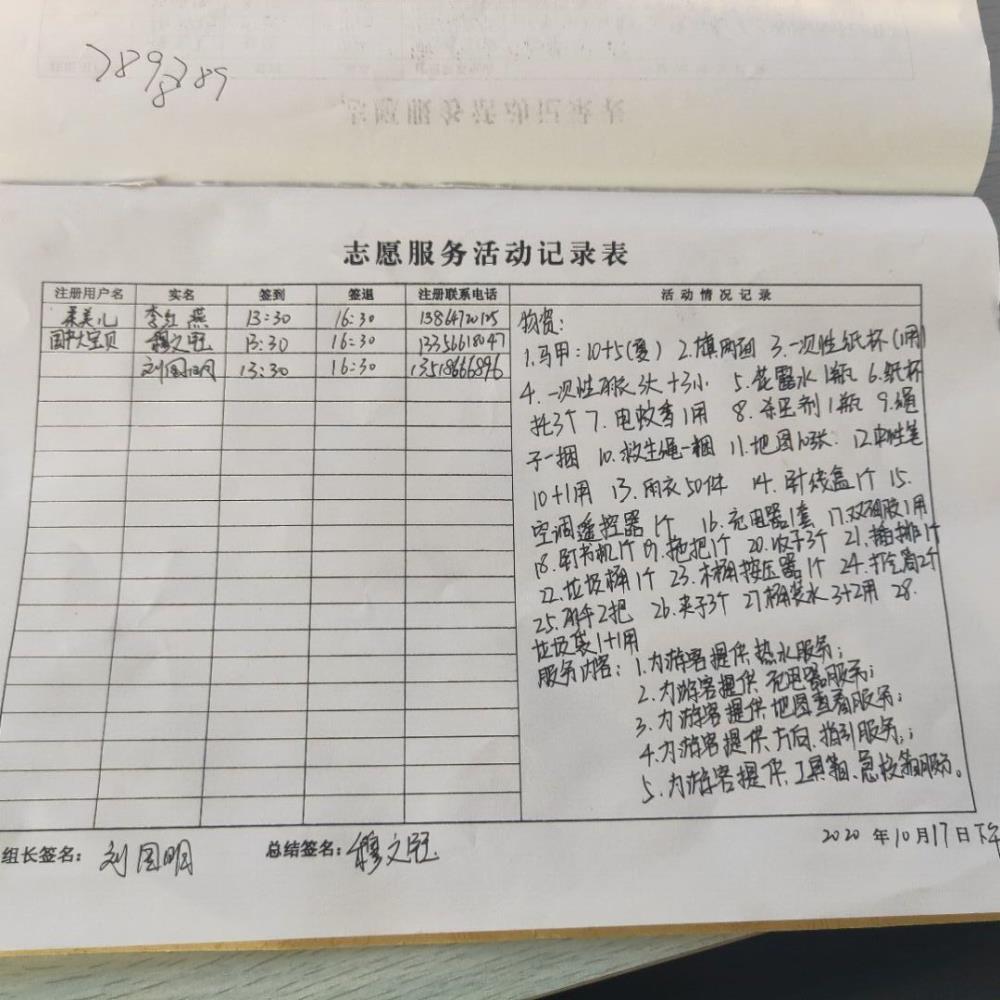 789789
8
志愿服务活动记录表
注册用户名 实名 签到 签退 注册联系电话 活动情况记录
柔美儿 李红燕 13:30 16:30 13864720125
国中大宝贝 穆文 13:30 16:30 13356618047
刘国明 13:30 16:30 13518666896
物资:
1.马甲:10+5(夏) 2.旗两面 3.一次性纸杯(1用)
4.一次性雨衣3大+3小 5.花露水1瓶 6.纸杯
托3个 7.电蚊香1用 8.杀虫剂1瓶 9.绳
子一捆 10.救生绳一捆 11.地图10张 12.中性笔
10+1用 13.雨衣50件 14.针线盒1个 15.
空调遥控器1个 16.充电器1套 17.双面胶1用
18.订书机1个 19.拖把1个 20.板子3个 21.插排1个
22.垃圾桶1个 23.水桶按压器1个 24.打气筒2个
25.雨伞2把 26.夹子3个 27.桶装水3+2用 28.
垃圾袋1+1用
服务内容:1.为游客提供热水服务;
2.为游客提供充电器服务;
3.为游客提供地图查看服务;
4.为游客提供方向、指引服务;
5.为游客提供工具箱、急救箱服务。
组长签名:刘国明 总结签名:穆文 2020年10月17日下午